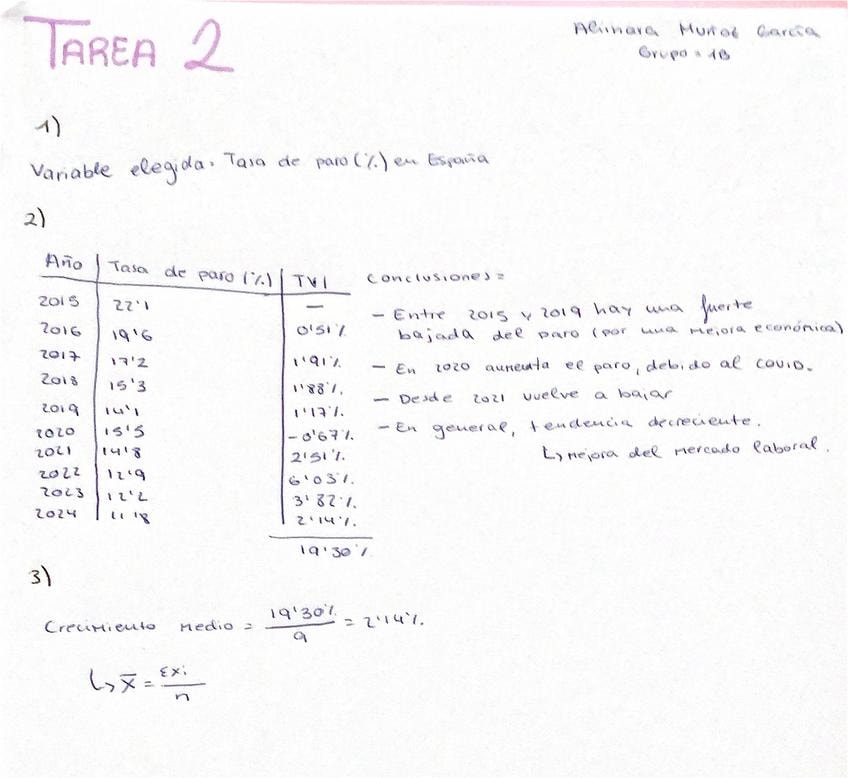 TAREA 2
Muñoz García
Grupo = 1B
1)
Variable elegida: Tasa de paro (%) en España
2)
Año | Tasa de paro (%) | TVI
2015 22'1 —
2016 19'6 0'51%
2017 17'2 1'91%
2018 15'3 1'88%
2019 14'1 1'17%
2020 15'5 -0'67%
2021 14'8 2'51%
2022 12'9 6'03%
2023 12'2 3'82%
2024 11'8 2'14%
19'30%
Conclusiones =
- Entre 2015 y 2019 hay una fuerte
bajada del paro (por una mejora económica)
- En 2020 aumenta el paro, debido al COVID.
- Desde 2021 vuelve a bajar
- En general, tendencia decreciente.
↳ mejora del mercado laboral.
3)
Crecimiento medio = 19'30% / 9 = 2'14%.
↳ x̄ = Σxi / n